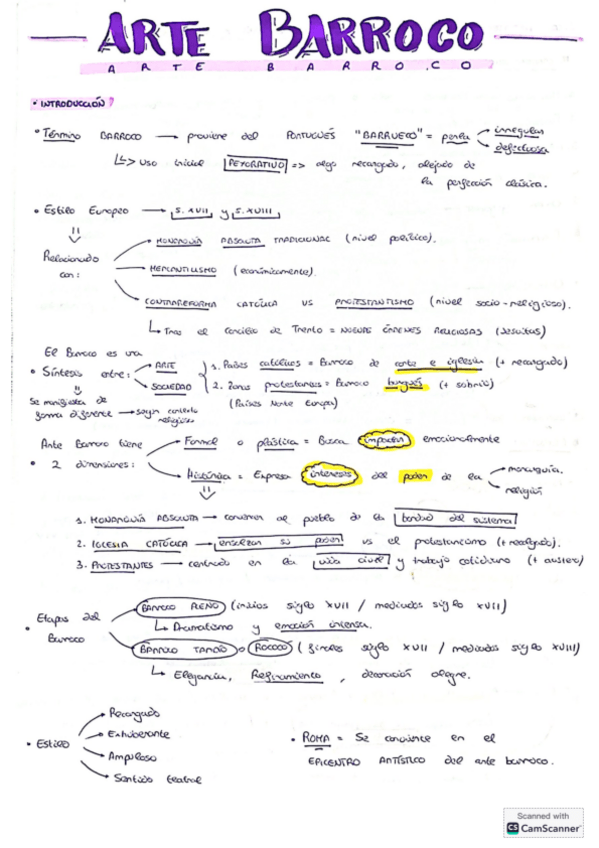 ARTE BARROCO
ARTE BARROCO
• INTRODUCCIÓN
• Término BARROCO → proviene del PORTUGUÉS "BARRUECO" = perla irregular
defectuosa
↳> Uso inicial PEYORATIVO => algo recargado, alejado de
la perfección clásica.
• Estilo Europeo → S. XVII y S. XVIII
Relacionado con:
MONARQUÍA ABSOLUTA TRADICIONAL (nivel político).
MERCANTILISMO (económicamente).
CONTRARREFORMA CATÓLICA VS PROTESTANTISMO (nivel socio-religioso).
↳ Tras el Concilio de Trento = NUEVAS ÓRDENES RELIGIOSAS (Jesuitas)
El Barroco es una
• Síntesis entre: ARTE
SOCIEDAD
1. Países católicos = Barroco de corte e iglesia (+ recargado)
2. Zonas protestantes = Barroco burgués (+ sobrio)
(Países Norte Europa)
Se manifiesta de
forma diferente → según contexto
religioso
Arte Barroco tiene
• 2 dimensiones:
Formal o plástica = Busca impactar emocionalmente
Histórica = Expresa intereses del poder de la monarquía.
religión
1. MONARQUÍA ABSOLUTA → convencer al pueblo de la bondad del sistema
2. IGLESIA CATÓLICA → ensalzar su poder vs el protestantismo (+ recargado).
3. PROTESTANTES → centrado en la vida civil y trabajo cotidiano (+ austero)
• Etapas del
Barroco
BARROCO PLENO (inicios siglo XVII / mediados siglo XVII)
↳ Dramatismo y emoción intensa.
BARROCO TARDÍO o ROCOCÓ (finales siglo XVII / mediados siglo XVIII)
↳ Elegancia, Refinamiento, decoración alegre.
• Estilo
Recargado
Exhuberante
Ampuloso
Sentido teatral
• ROMA = Se convierte en el
EPICENTRO ARTÍSTICO del arte barroco.
Scanned with
CS CamScanner